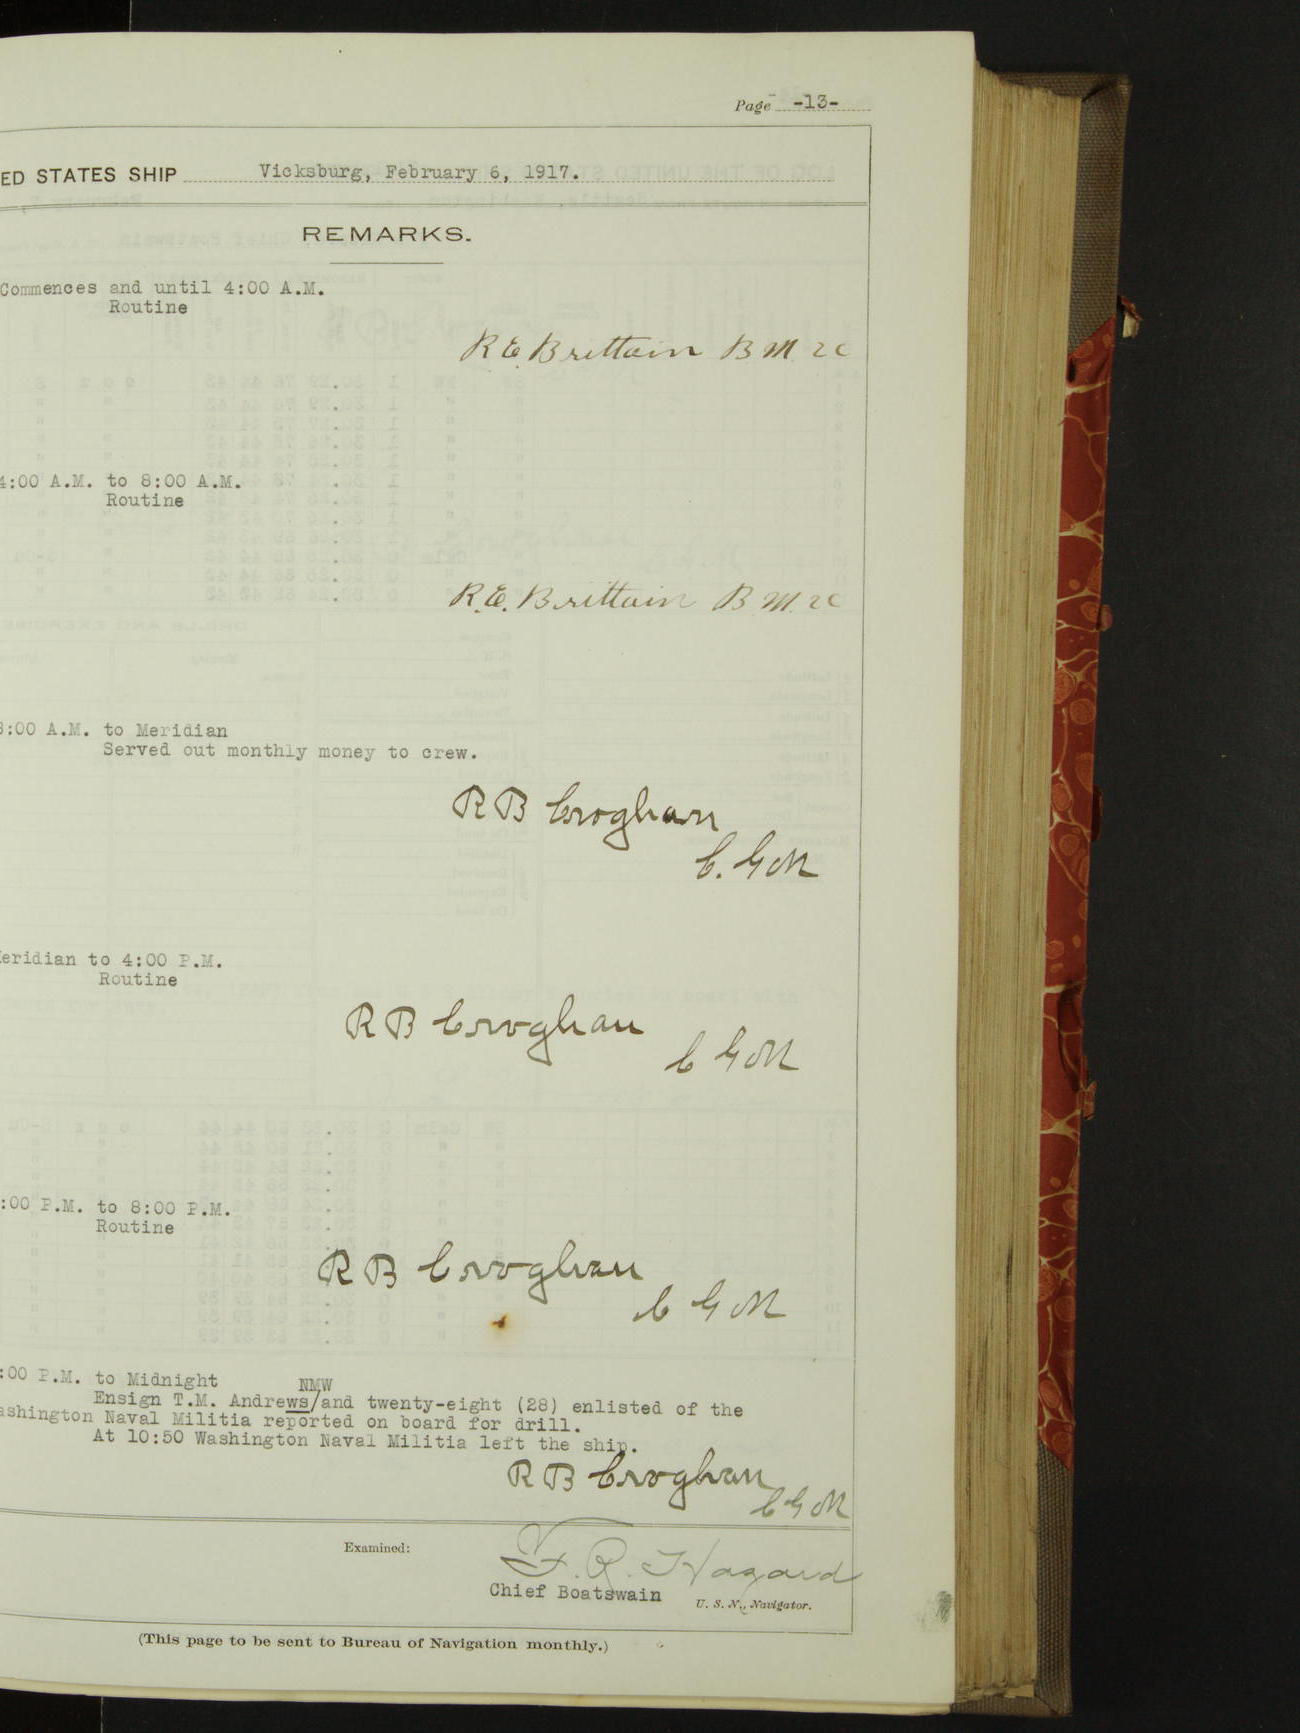 Page -13-
ED STATES SHIP Vicksburg, February 6, 1917.
REMARKS.
Commences and until 4:00 A.M.
Routine
R.E. Brittain B.M. 2c
4:00 A.M. to 8:00 A.M.
Routine
R.E. Brittain B.M. 2c
8:00 A.M. to Meridian
Served out monthly money to crew.
R B Croghan
C. G M
eridian to 4:00 P.M.
Routine
R B Croghan
C G M
:00 P.M. to 8:00 P.M.
Routine
R B Croghan
C G M
:00 P.M. to Midnight
NMW
Ensign T.M. Andrews/and twenty-eight (28) enlisted of the
ashington Naval Militia reported on board for drill.
At 10:50 Washington Naval Militia left the ship.
R B Croghan
C G M
Examined:
F. R. Hazard
Chief Boatswain U. S. N., Navigator.
(This page to be sent to Bureau of Navigation monthly.)